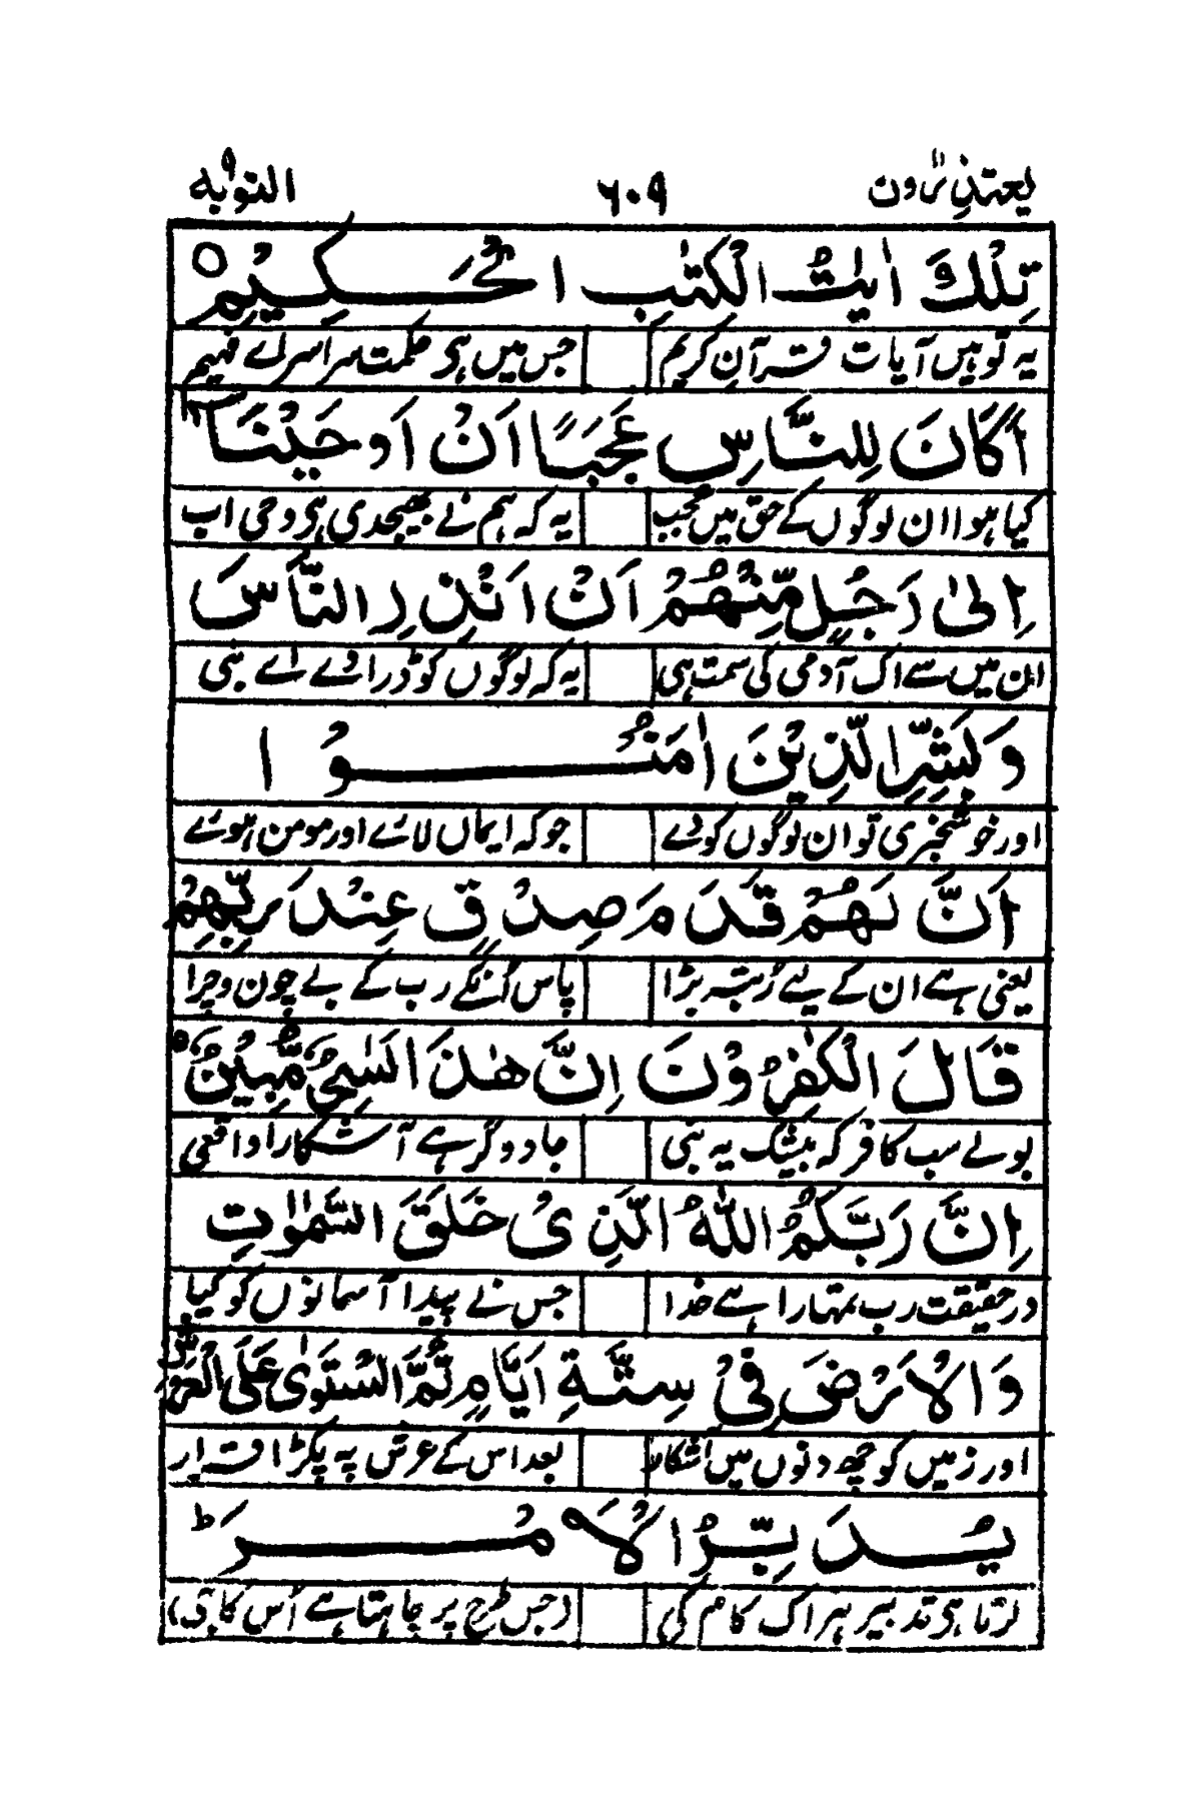 یعتذرون ۱۱ ۶۰۹ التوبہ ۹
تِلْكَ اٰیٰتُ الْكِتٰبِ الْحَكِیْمِ ○
یہ تو ہیں آیات قرآنِ کریم جس میں ہی حکمت سراسر اے فہیم
اَكَانَ لِلنَّاسِ عَجَبًا اَنْ اَوْحَیْنَاۤ
کیا ہوا ان لوگوں کے حق میں عجب یہ کہ ہم نے بھیجدی ہی وحی اب
اِلٰی رَجُلٍ مِّنْهُمْ اَنْ اَنْذِرِ النَّاسَ
ان میں سے اک آدمی کی سمت ہی یہ کہ لوگوں کو ڈرا دے اے نبی
وَبَشِّرِ الَّذِیْنَ اٰمَنُوْا
اور خوشخبری تو ان لوگوں کو دے جو کہ ایماں لائے اور مومن ہوئے
اَنَّ لَهُمْ قَدَمَ صِدْقٍ عِنْدَ رَبِّهِمْ
یعنی ہے ان کے لیے رُتبہ بڑا پاس اُنکے رب کے بے چون و چرا
قَالَ الْكٰفِرُوْنَ اِنَّ هٰذَا لَسٰحِرٌ مُّبِیْنٌ ○
بولے سب کافر کہ بیشک یہ نبی جادوگر ہے آشکارا واقعی
اِنَّ رَبَّكُمُ اللّٰهُ الَّذِیْ خَلَقَ السَّمٰوٰتِ
در حقیقت رب تمہارا ہے خدا جس نے پیدا آسمانوں کو کیا
وَالْاَرْضَ فِیْ سِتَّةِ اَیَّامٍ ثُمَّ اسْتَوٰی عَلَی الْعَرْشِ
اور زمیں کو چھ دنوں میں آشکار بعد اس کے عرش پہ پکڑا قرار
یُدَبِّرُ الْاَمْرَ ؕ
کرتا ہی تدبیر ہر اک کام کی (جس طرح پر چاہتا ہے اُس کا جی)